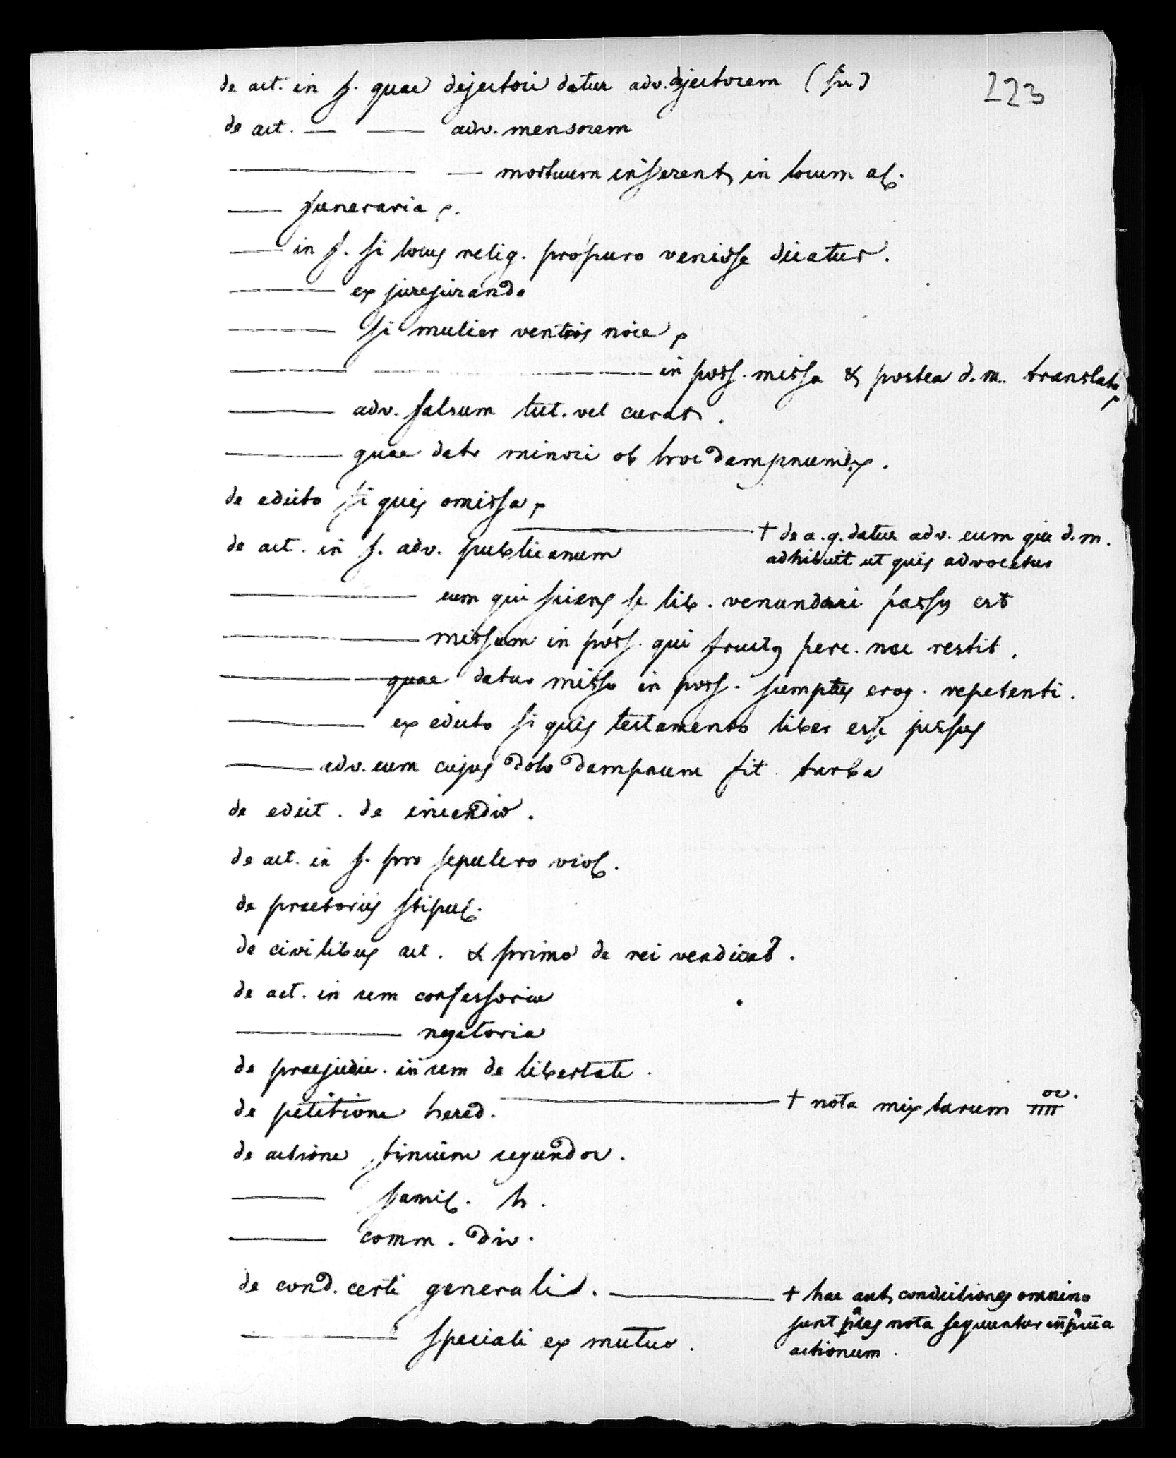 de act. in f. quae dejectori datur adv. dejectorem (sic) 223
de act. — — adv. mensorem
— — mortuum inferent, in locum al.
— funeraria,.
— in f. si locus relig. pro puro venisse dicatur.
— ex jurejurando
— si mulier ventris noie,
— — in poss. missa & postea d. m. translat,
— adv. falsum tut. vel curat.
— quae dat minori ob hoc dampnum,.
de edicto si quis omissa,
— + de a. q. datur adv. eum qui d. m.
adhibuit ut quis advocetur
de act. in f. adv. publicanum
— eum qui sciens se lib. venundari passus est
— missum in poss. qui fructus perc. nec restit.
— quae datur misso in poss. sumptus erog. repetenti.
— ex edicto si quis testamento liber esse jussus
— adv. eum cujus dolo dampnum fit turba
de edict. de incendio.
de act. in f. pro sepulcro viol.
de praetoriis stipul.
de civilibus act. & primo de rei vendicat.
de act. in rem confessoria
— negatoria
de praejudic. in rem de libertate.
de petitione hered. — + nota mixtarum
de actione finium regundor.
— famil. h.
— comm. div.
de cond. certi generali. — + hae aut, condictiones omnino
sunt nota sequuntur
actionum.
— speciali ex mutuo.